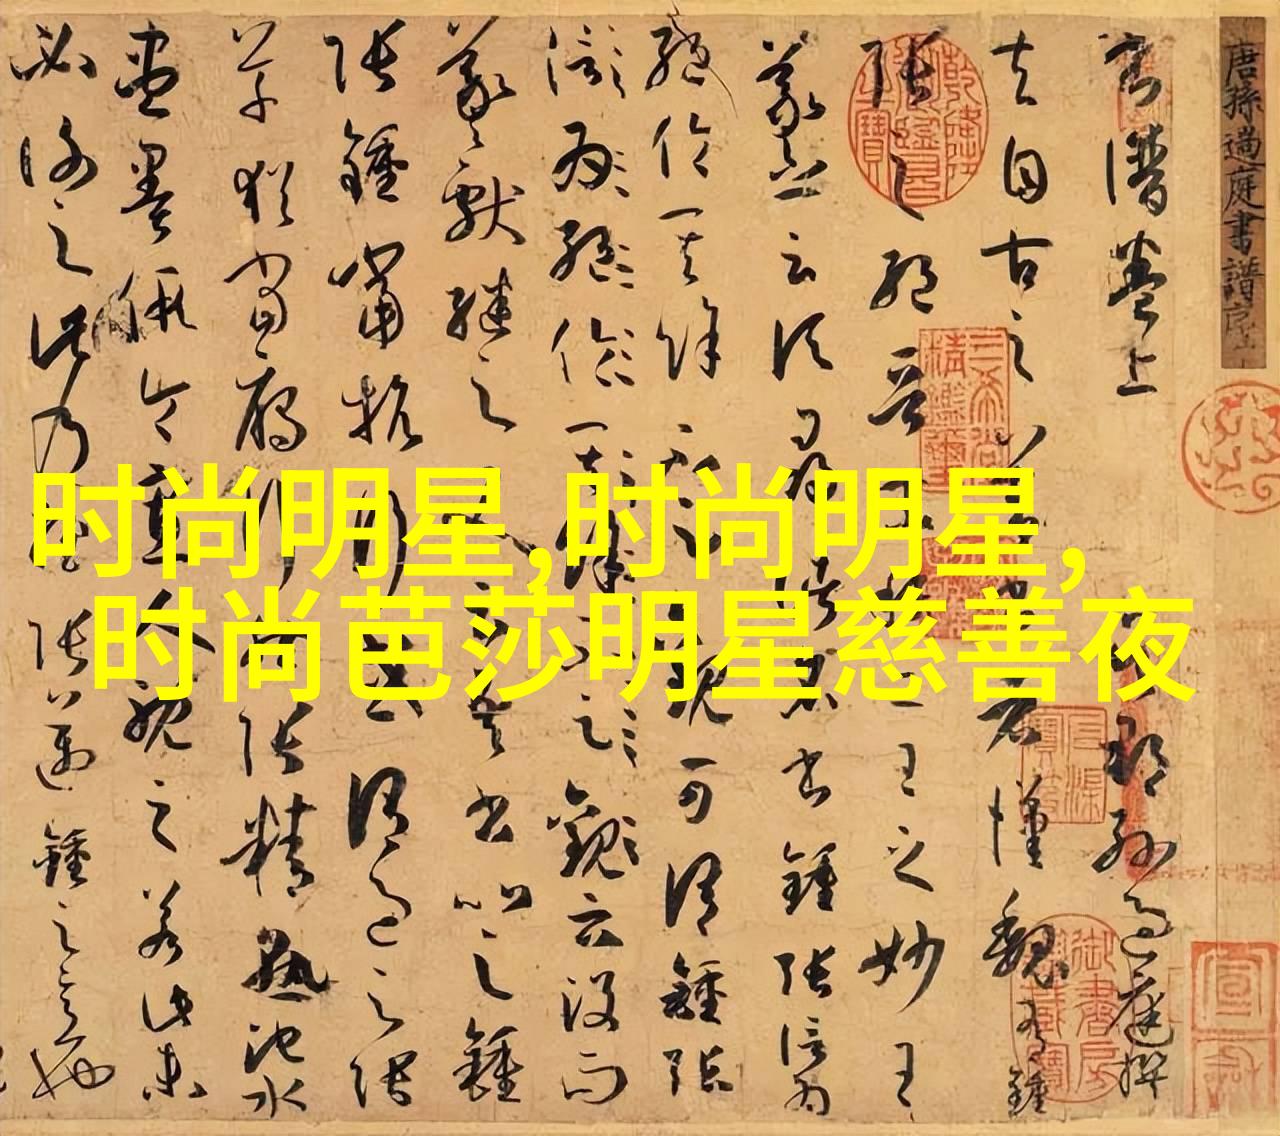 時尚明星,时尚明星,
时尚芭莎明星慈善夜
唐孫過庭書譜序
書譜卷上 吳郡孫過庭撰
夫自古之善書者漢魏有鍾
張之絕晉末稱二王之妙王
羲之云頃尋諸名書鍾張信為
絕倫其餘不足觀可謂鍾張
云沒而
羲獻繼之又云吾書比之鍾
張鍾當抗行或謂過之張
草猶當雁行然張精熟池水
盡墨假令寡人耽之若此未
必謝之此乃推張邁鍾之意也